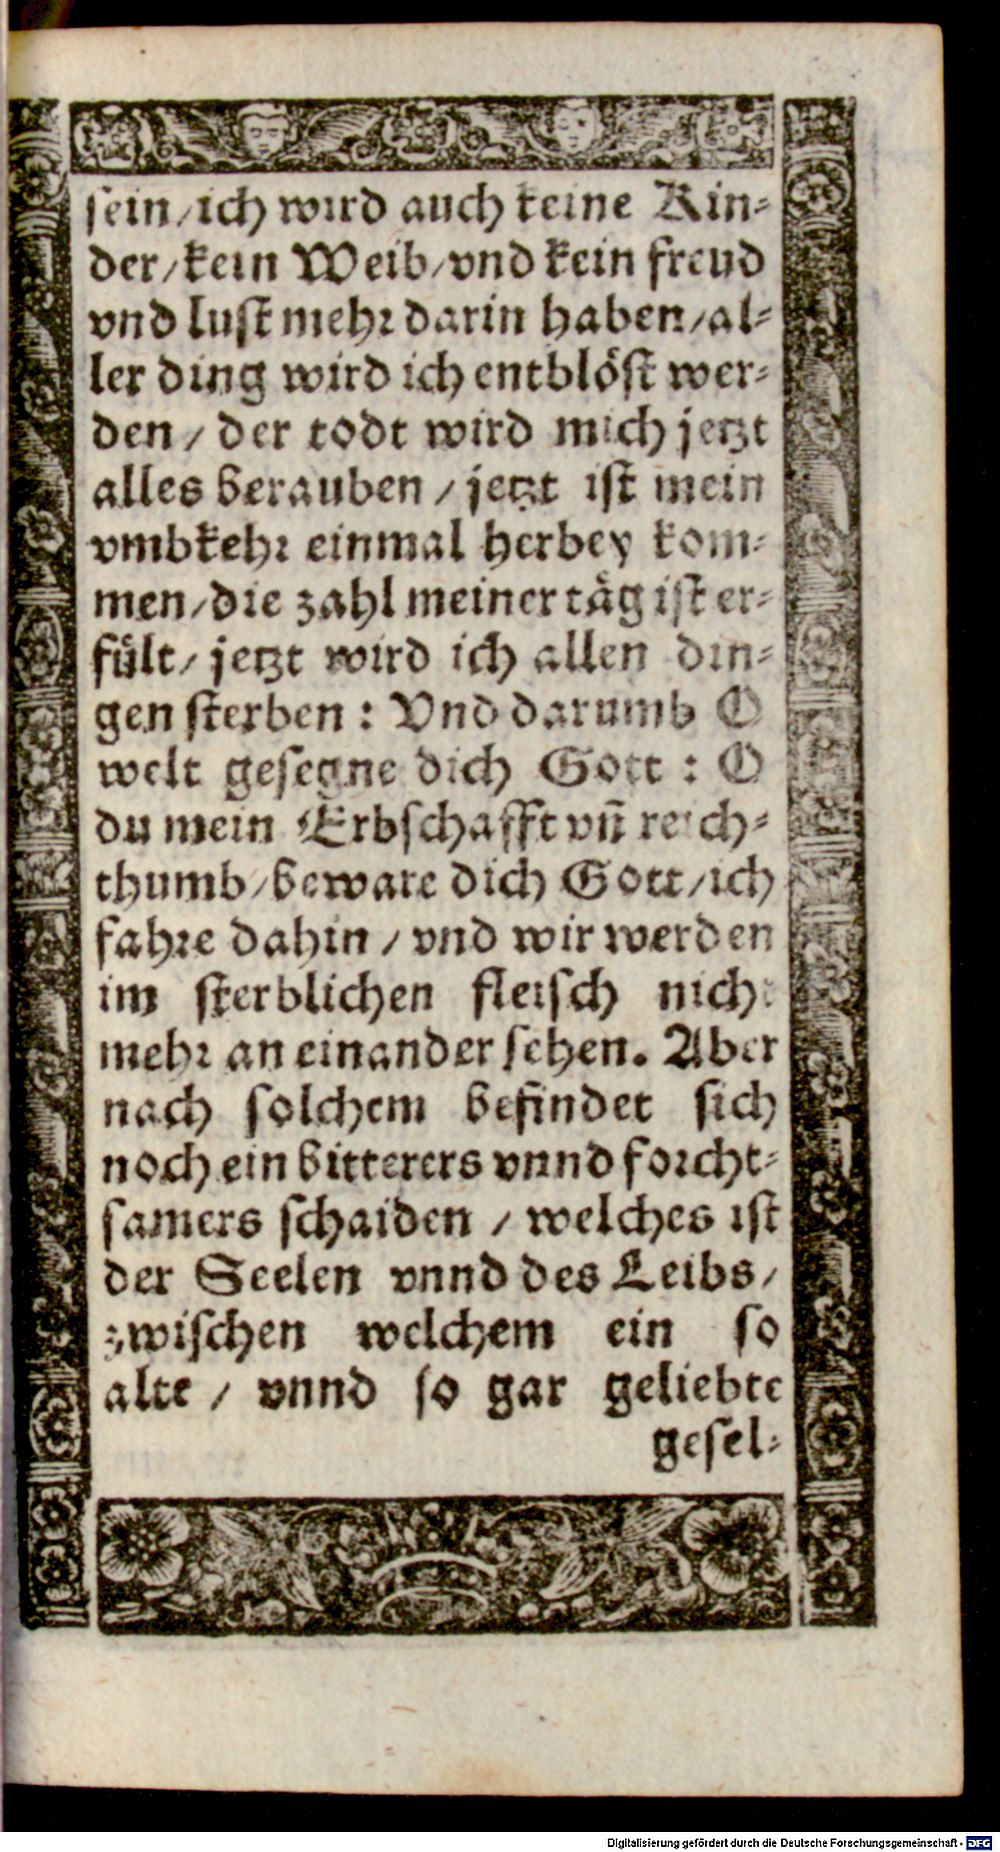 sein/ich wird auch keine Kin⸗
der/kein Weib/vnd kein freud
vnd lust mehr darin haben/al⸗
ler ding wird ich entblöst wer⸗
den / der todt wird mich jetzt
alles berauben / jetzt ist mein
vmbkehr einmal herbey kom⸗
men/die zahl meiner täg ist er⸗
fült/ jetzt wird ich allen din⸗
gen sterben : Vnd darumb O
welt gesegne dich Gott : O
du mein Erbschafft vñ reich⸗
thumb/beware dich Gott/ich
fahre dahin / vnd wir werden
im sterblichen fleisch nicht
mehr an einander sehen. Aber
nach solchem befindet sich
noch ein bitterers vnnd forcht⸗
samers schaiden / welches ist
der Seelen vnnd des Leibs/
zwischen welchem ein so
alte / vnnd so gar geliebte
gesel⸗
Digitalisierung gefördert durch die Deutsche Forschungsgemeinschaft - DFG